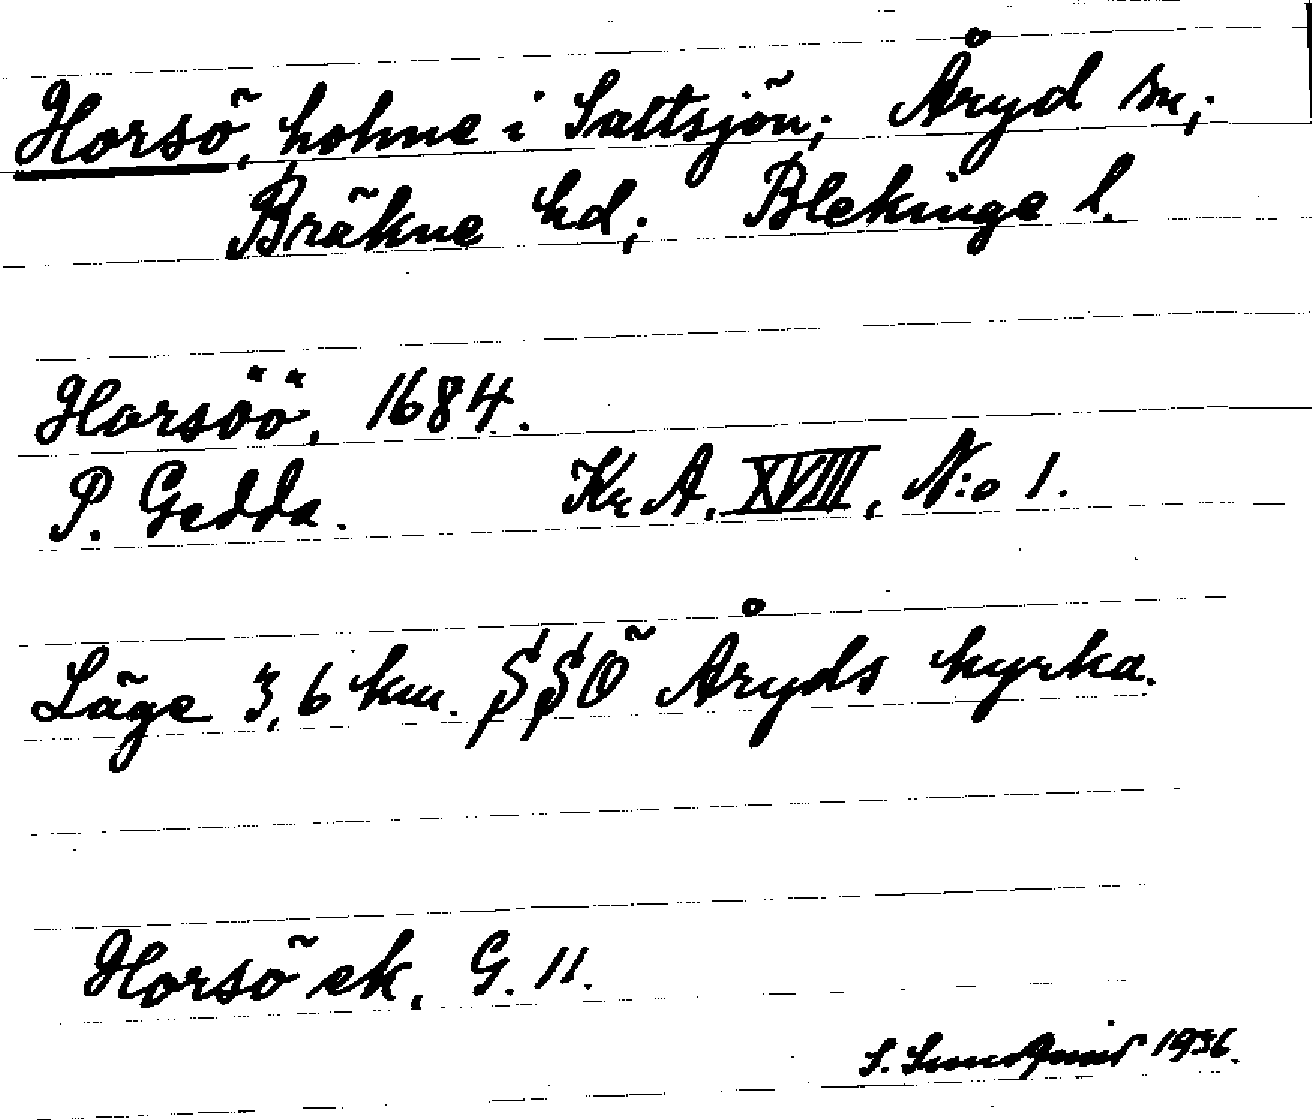 Horsö, holme i Saltsjön; Åryd sn;
Bräkne hd; Blekinge l.
Horsöö, 1684.
P. Gedda. Kr. A. XVIII, N:o 1.
Läge 3,6 km. SSÖ Åryds kyrka.
Horsö ek. G. 11.
S. Sundquist 1936.